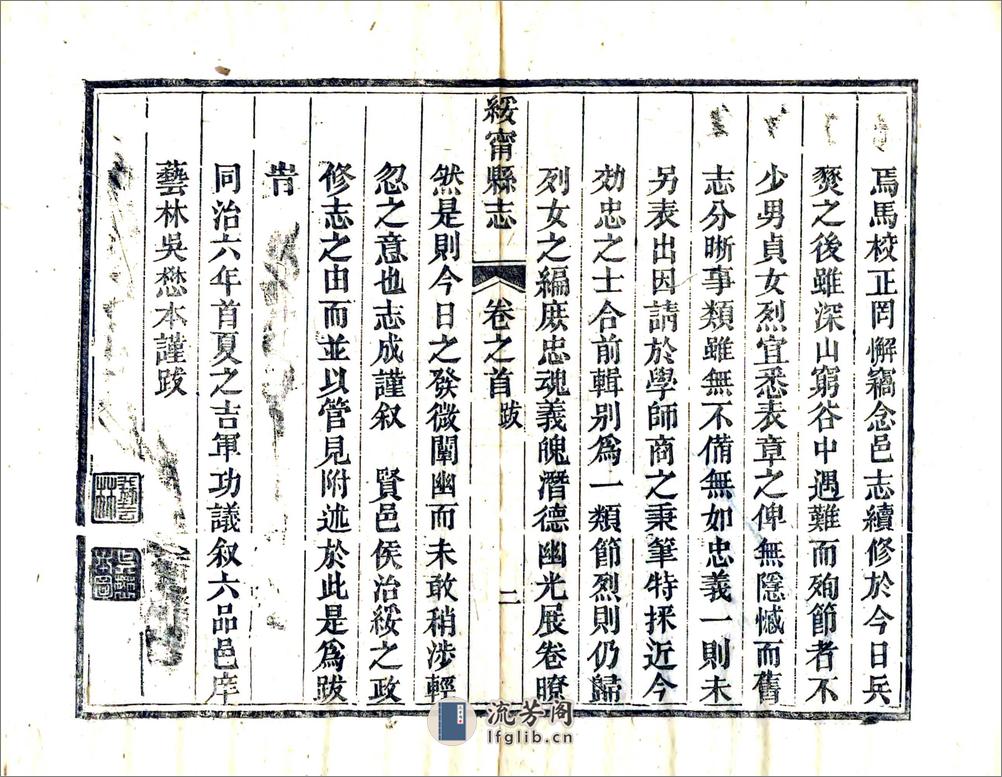 焉馬校正罔懈竊念邑志續修於今日兵
燹之後雖深山窮谷中遇難而殉節者不
少男貞女烈宜悉表章之俾無隱憾而舊
志分晰事類雖無不備無如忠義一則未
另表出因請於學師商之秉筆特採近今
効忠之士合前輯别為一類節烈則仍歸
列女之編庶忠魂義魄潛德幽光展卷瞭
綏甯縣志 卷之首 跋 二
然是則今日之發微闡幽而未敢稍涉輕
忽之意也志成謹叙 賢邑侯治綏之政
修志之由而並以管見附述於此是為跋
旹
同治六年首夏之吉軍功議叙六品邑庠
藝林吳懋本謹跋
流芳阁
lfglib.cn